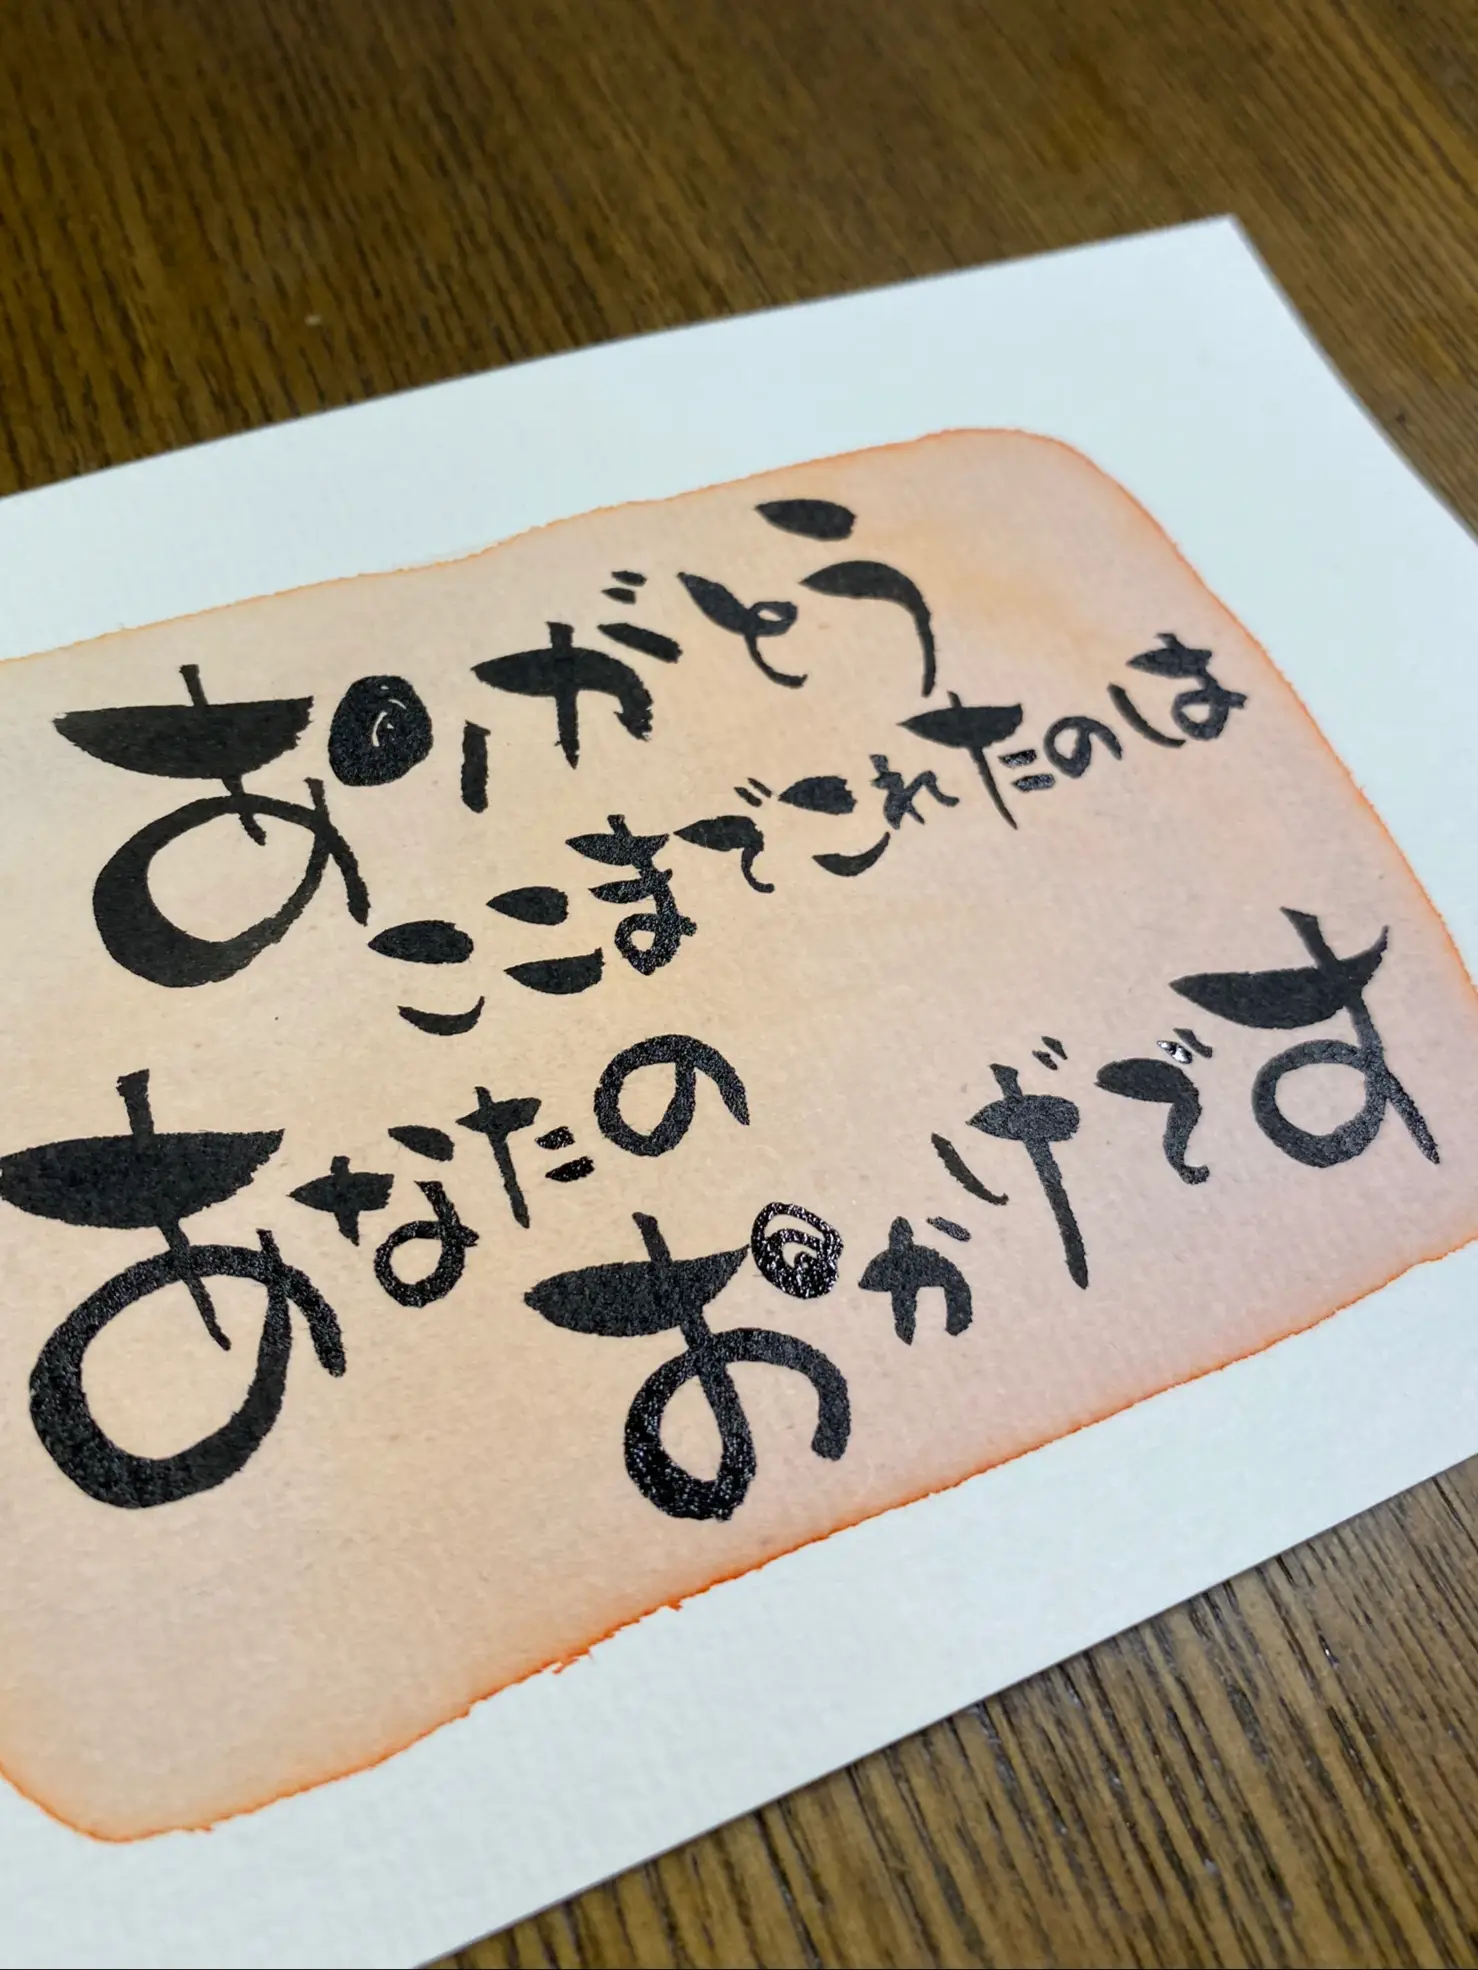 ありがとう
ここまでこれたのは
あなたの
おかげです